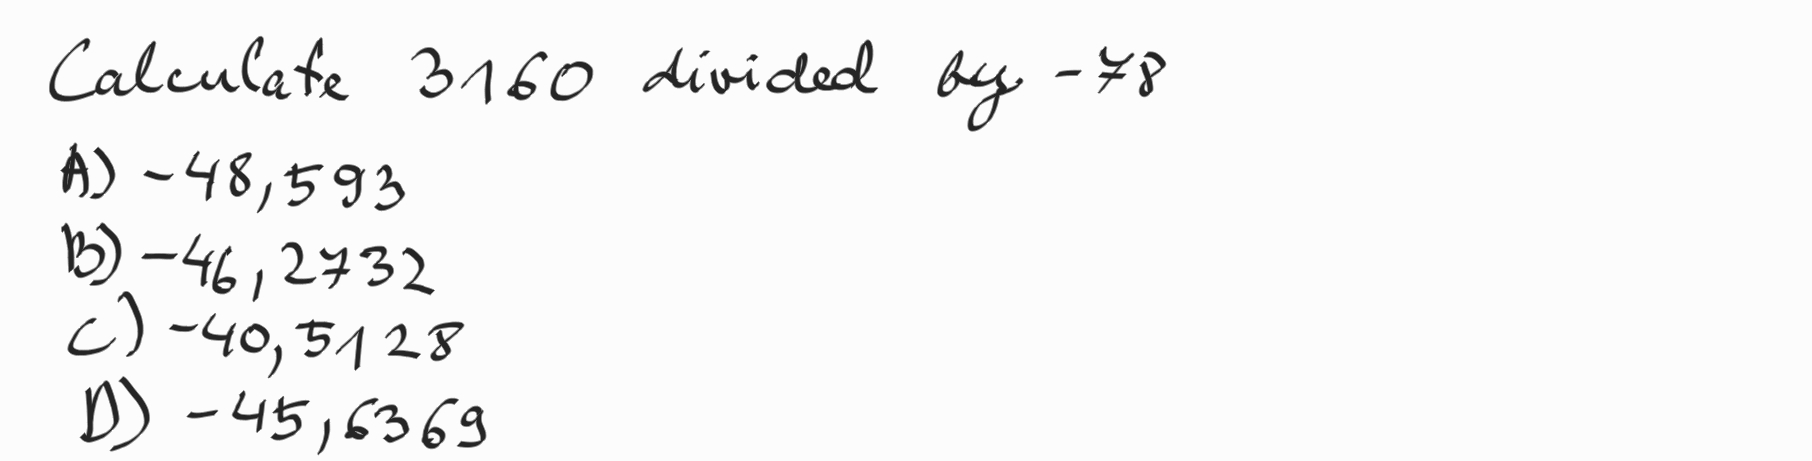 Calculate 3160 divided by -78
A) -48,593
B) -46,2732
C) -40,5128
D) -45,6369